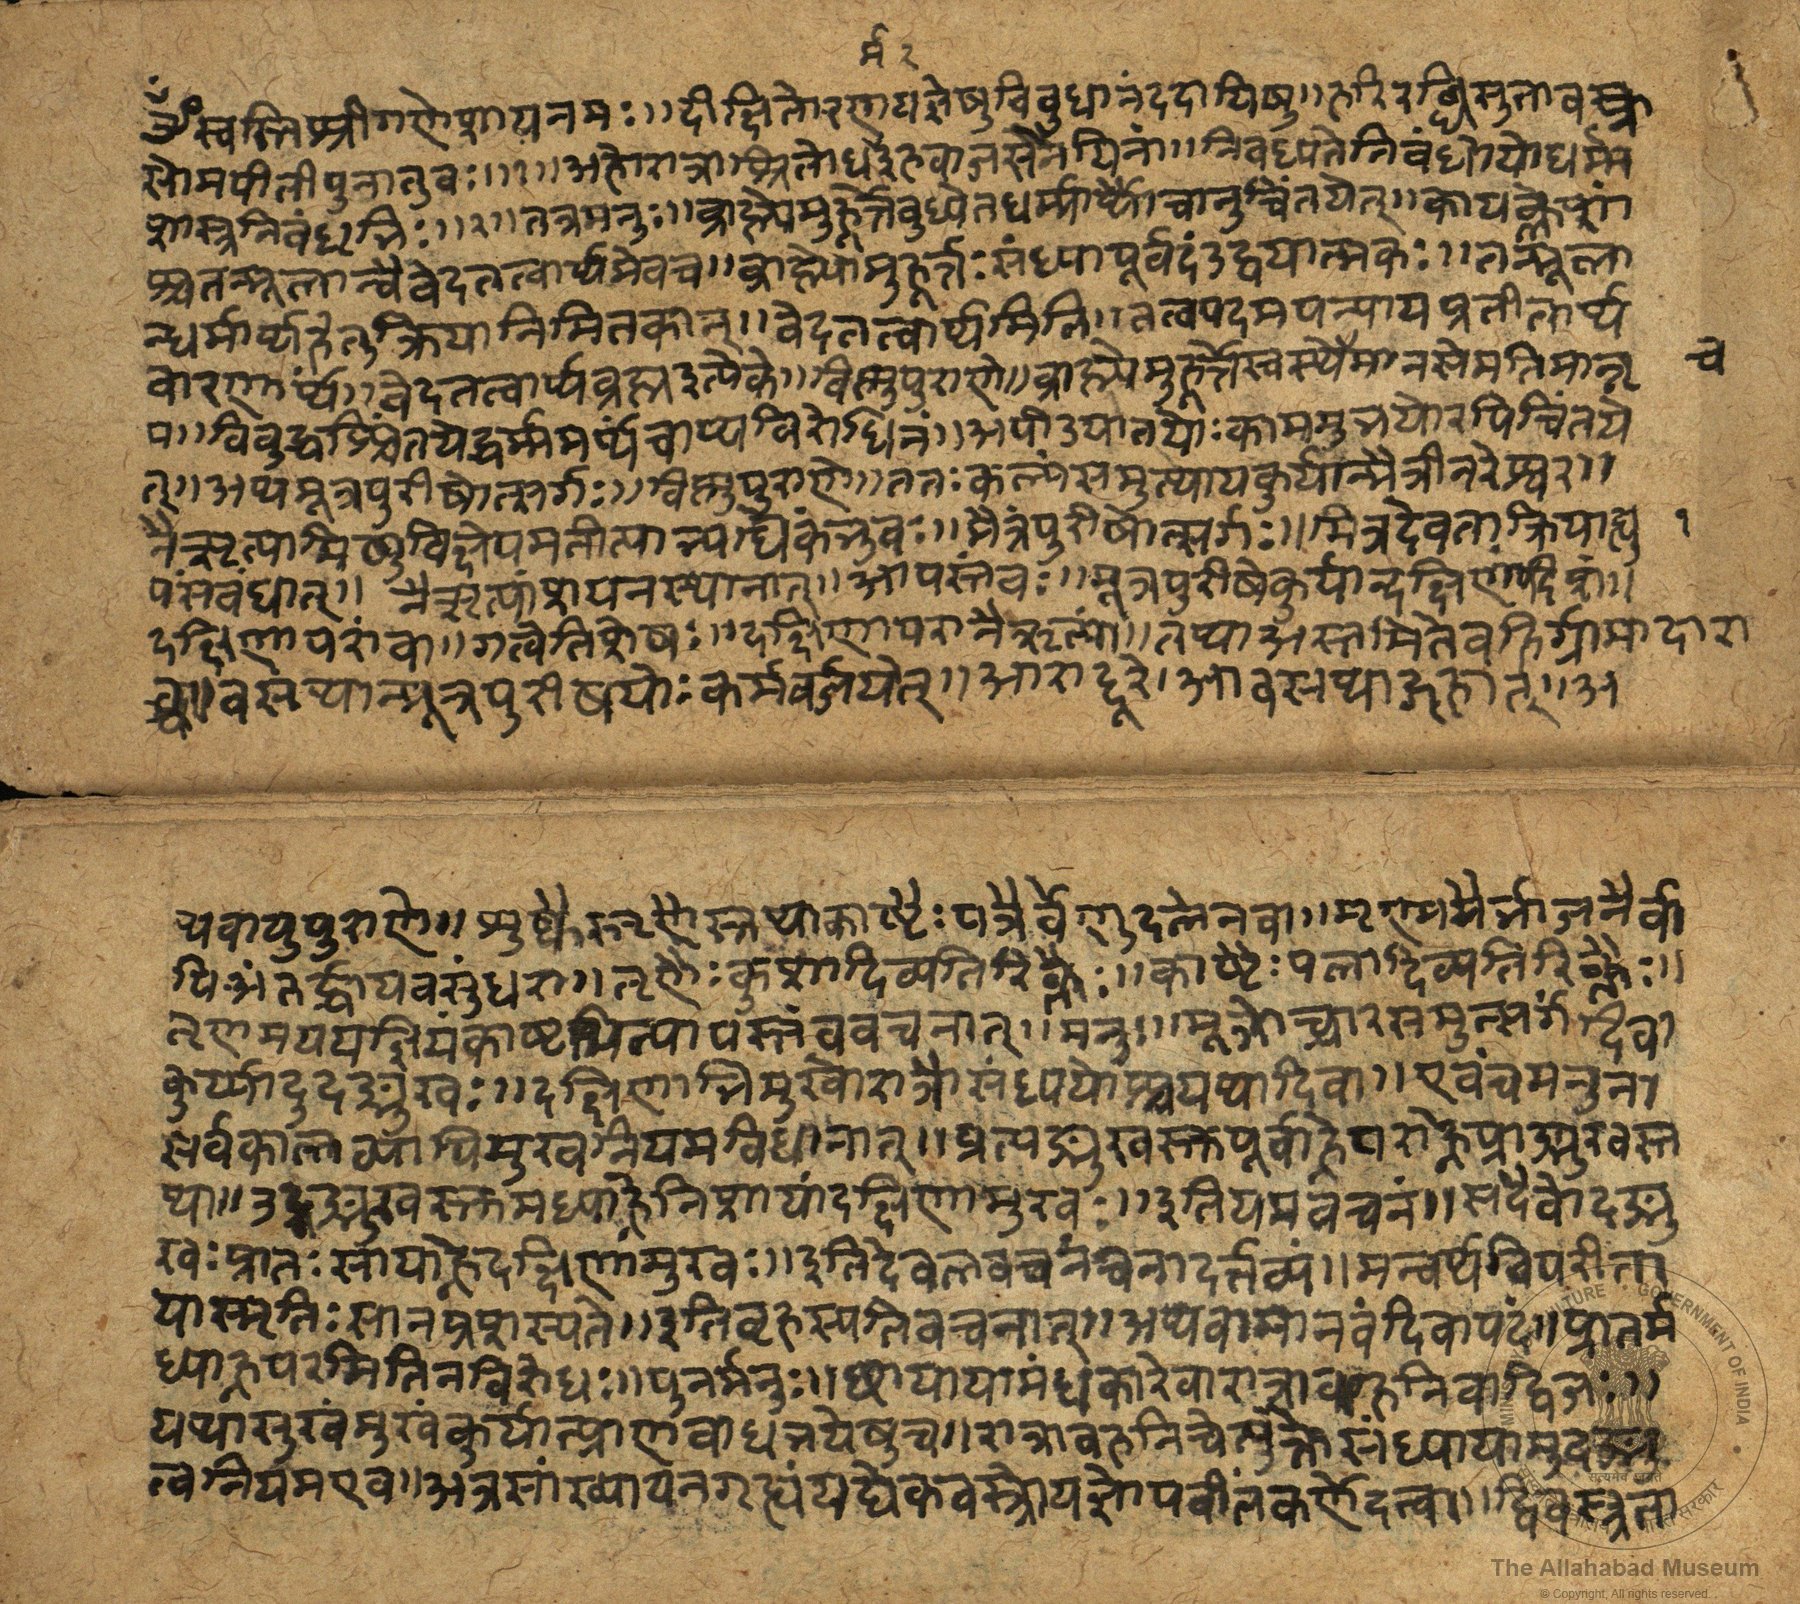 र्म १
ॐ स्वस्तिश्रीगणेशायनमः॥दीक्षितोरणयज्ञेषुविबुधानंददायिषु॥हरिरश्विसुतावस्त्र
सोमपीतीपुनातुवः॥१॥अहोरात्राश्रितोधर्म निबध्यतेनिबंधोयोधर्म्म
शास्त्रनिबंधृभिः॥२॥तत्रमनुः॥ब्राह्म्येमुहूर्त्तेबुध्येतधर्म्मार्थौचानुचिंतयेत्॥कायक्लेशां
श्चतन्मूलान्वैवेदतत्वार्थमेवच॥ब्राह्म्योमुहूर्त्तःसंध्यापूर्वदंडद्वयात्मकः॥तन्मूला
न्धर्मार्थहेतुक्रियानिमितकान्॥वेदतत्वार्थमिति॥तत्वपदमपन्यायप्रतीतार्थ
वारणार्थं॥वेदतत्वार्थब्रह्मइत्येके॥विष्णुपुराणे॥ब्राह्म्येमुहूर्त्तेस्वस्थेमानसेमतिमान्नृ
च
प॥विबुद्धश्चिंतयेद्धर्म्ममर्थंचाप्यविरोधिनं॥अपीडयातयोःकाममुभयोरपिचिंतये
त्॥अथमूत्रपुरीषोत्सर्गः॥विष्णुपुराणे॥ततःकल्यंसमुत्थायकुर्यान्मैत्रीनरेश्वर॥
नैऋत्यामिषुविक्षेपमतीत्याभ्यधिकंभुवः॥मैत्रंपुरीषोत्सर्गः॥मित्रदेवताक्रियाह्यु
१
पंसंबंधात्॥ नैऋत्यांशयनस्थानात्॥आपस्तंबः॥मूत्रपुरीषेकुर्यान्दक्षिणांदिशं॥
दक्षिणापरांवा॥गत्वेतिशेषः॥दक्षिणापरानैऋत्यां॥तथाअस्तमितेवहिर्ग्रामादारा
च्चा॥वसथान्मूत्रपुरीषयोःकर्मवर्जयेत्॥आराद्दूरे।आवसथाद्गृहात्॥अ
थवायुपुराणे॥शुष्कैस्तृणैस्तथाकाष्टैःपत्रैर्वेणुदलेनवा॥मृण्मयैर्भाजनैर्वा
पिअंतर्द्धायवसुंधरा॥तृणैःकुशादिव्यतिरिक्तैः॥काष्टैःपलाशादिव्यतिरिक्तैः॥
तृणमययज्ञियंकाष्टमित्यापस्तंबवचनात्॥मनुः॥मूत्रोच्चारसमुत्सर्गंदिवा
कुर्य्यादुदङ्मुखः॥दक्षिणाभिमुखोरात्रौसंध्ययोश्चयथादिवा॥एवंचमनुना
सर्वकालव्यापिमुखनियमविधानात्॥प्रत्यङ्मुखस्तुपूर्वाह्णेपराह्णेप्राङ्मुखस्त
था॥उदङ्मुखस्तुमध्याह्नेनिशायांदक्षिणामुखः॥इतियमवचनं॥सदैवोदङ्मु
खःप्रातःसायाह्नेदक्षिणामुखः॥इतिदेवलवचनंचनादर्त्तव्यं॥मन्वर्थविपरीता
यास्मृतिःसानप्रशस्यते॥इतिबृहस्पतिवचनात्॥अथवा प्रातर्म
ध्याह्नपरमितिनविरोधः॥पुनर्मनुः॥छायायामंधकारेवारात्रावहनिवाद्विजः॥
यथासुखंमुखंकुर्यात्प्राणबाधभयेषुच॥रात्रावहनिचेत्युक्ते संध्यायामुदङ्मु
त्वनियमएव॥अत्रसांख्यायनगृह्यंयद्येकवस्त्रोयज्ञोपवीतंकर्णेदत्वा॥द्विवस्त्रता
The Allahabad Museum
© Copyright, All rights reserved.
MINISTRY OF CULTURE • GOVERNMENT OF INDIA
सत्यमेव जयते